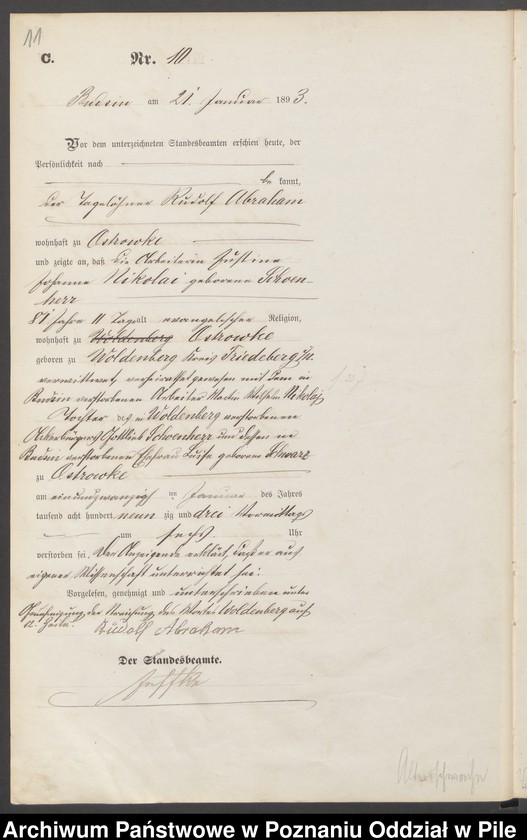 11
C. Nr. 10
Budsin am 21 Januar 1893.
Vor dem unterzeichneten Standesbeamten erschien heute, der
Persönlichkeit nach
be kannt,
der Tagelöhner Rudolf Abraham
wohnhaft zu Ostrowke
und zeigte an, daß die Arbeiterin Justine
Johanne Nikolai geborene Schoen-
herr
81 Jahre 11 Tage alt evangelischer Religion,
wohnhaft zu Woldenberg Ostrowke
geboren zu Woldenberg Kreis Friedeberg N/M.
verwittwet, verheirathet gewesen mit dem in
Budsin verstorbenen Arbeiter Martin Wilhelm Nikolai
Tochter des in Woldenberg verstorbenen
Ackerbürgers Gottlieb Schoenherr und dessen in
Budsin verstorbenen Ehefrau Luise geborene Schwarz
zu Ostrowke
am einundzwanzigsten Januar des Jahres
tausend acht hundert neun zig und drei Vormittags
um sechs Uhr
verstorben sei, Der Anzeigende erklärt daß er aus
eigener Wissenschaft unterrichtet sei.
Vorgelesen, genehmigt und unterschrieben unter
Genehmigung der Streichung des Wortes Woldenberg auf
Zeile.
Rudolf Abraham
Der Standesbeamte.
Altersschwäche
Archiwum Państwowe w Poznaniu Oddział w Pile